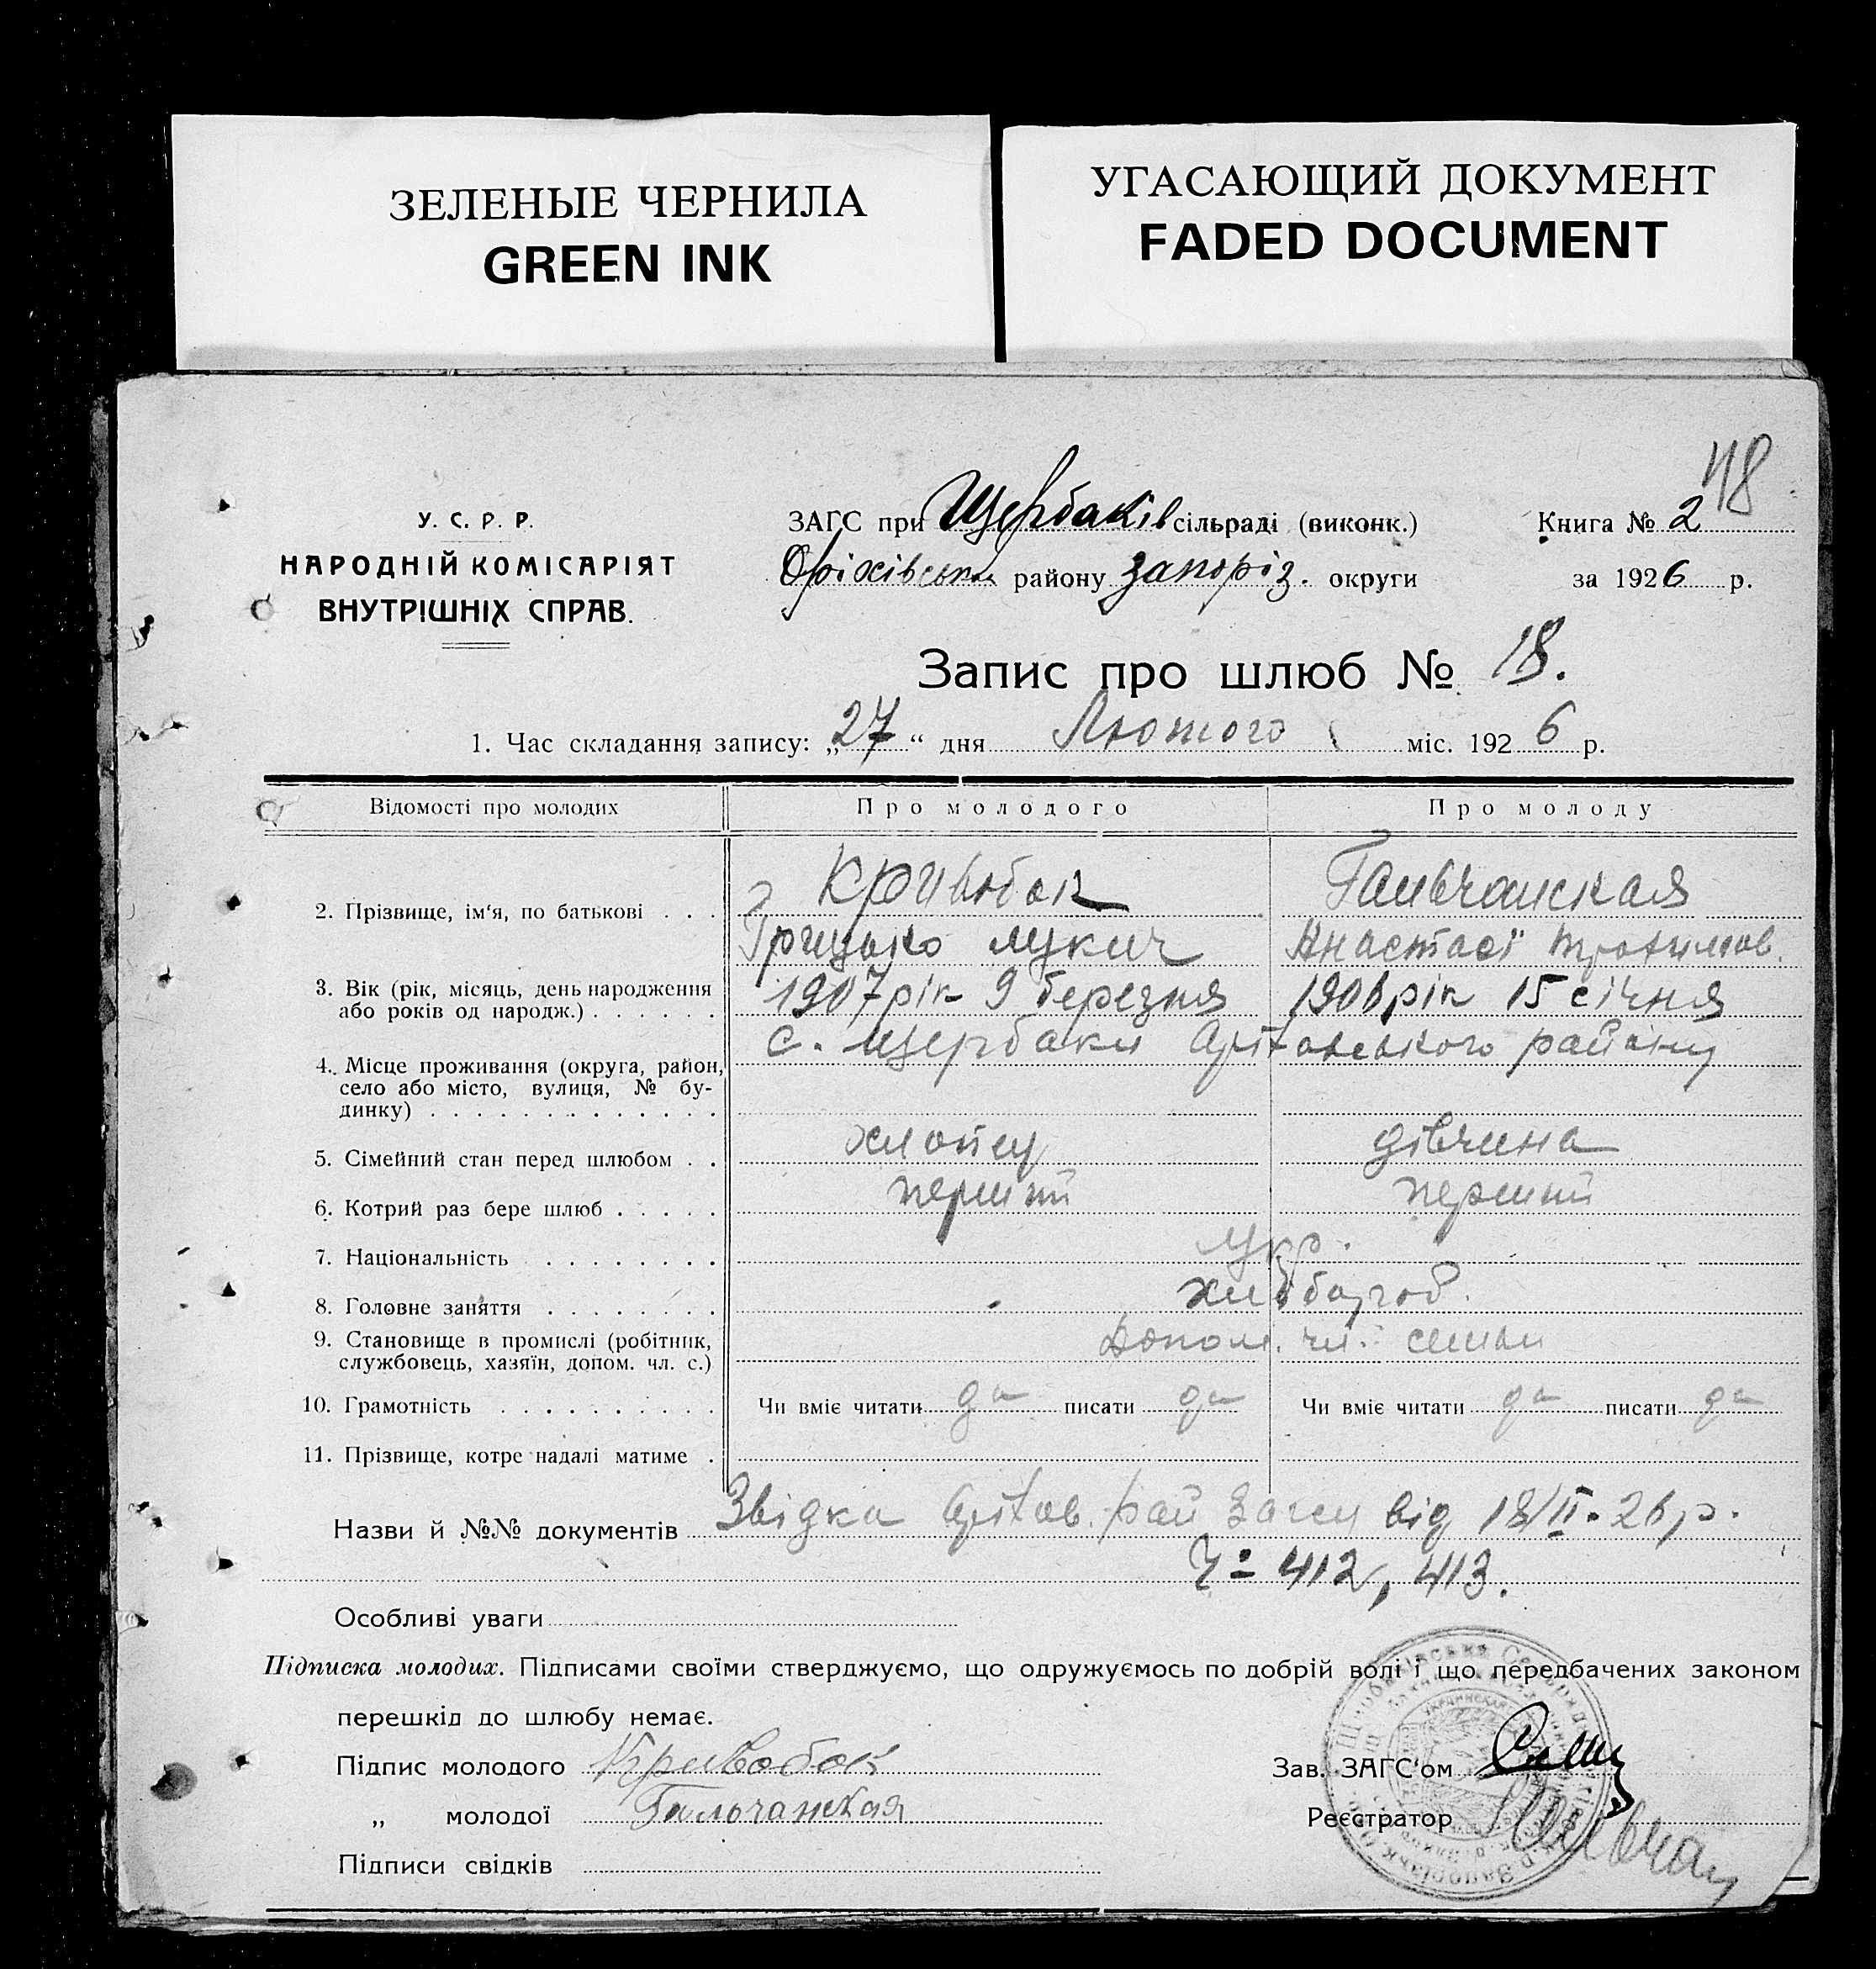 ЗЕЛЕНЫЕ ЧЕРНИЛА
GREEN INK
УГАСАЮЩИЙ ДОКУМЕНТ
FADED DOCUMENT
48
У. С. Р. Р.
НАРОДНІЙ КОМІСАРІЯТ
ВНУТРІШНІХ СПРАВ.
ЗАГС при Щербаків сільраді (виконк.)
Оріхівськ району запоріз. округи
Книга № 2
за 1926 р.
Запис про шлюб № 18.
1. Час складання запису: „27“ дня Лютого міс. 1926 р.
Відомості про молодих Про молодого Про молоду
2. Прізвище, ім'я, по батькові . . . Кривобок Гальчанская
Грицько Лукич Анастасі Трохимов.
3. Вік (рік, місяць, день народження 1907 рік 9 березня 1906 рік 15 січня
або років од народж.) . . . . . .
с. Щербаки Оріховського району
4. Місце проживання (округа, район,
село або місто, вулиця, № бу-
динку) . . . . . . . . . . . . .
5. Сімейний стан перед шлюбом . . хлопец дівчина
6. Котрий раз бере шлюб . . . . . перший перший
7. Національність . . . . . . . . укр.
8. Головне заняття . . . . . . . .
9. Становище в промислі (робітник, Допом. чл. семьи
службовець, хазяїн, допом. чл. с.)
10. Грамотність . . . . . . . . . . Чи вміє читати да писати да Чи вміє читати да писати да
11. Прізвище, котре надалі матиме .
Назви й №№ документів Звідка Оріхов. рай Загсу від 18/II-26 р.
Ч= 412, 413.
Особливі уваги
Підписка молодих. Підписами своїми стверджуємо, що одружуємось по добрій волі і що передбачених законом
перешкід до шлюбу немає.
Підпис молодого Кривобок
„ молодої Гальчанская
Підписи свідків
Зав. ЗАГС'ом
Реєстратор